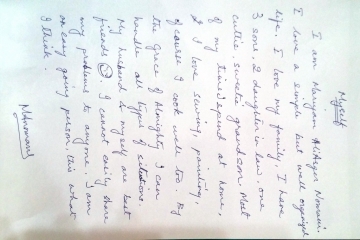 Myself
I am Maryam Ali Asger Nomani.
I love a simple but well organized
life. I love my family. I have
3 sons, 2 daughter in law. one
cuttie sweetie grandson. Most
of my time spend at home,
I love sewing, painting,
of course I cook well too. By
the Grace of Almighty I can
handle all type of sitations.
My husband & myself are best
friends ☺. I cannot easily share
my problems to anyone. I am
an easy going person, this what
I think.